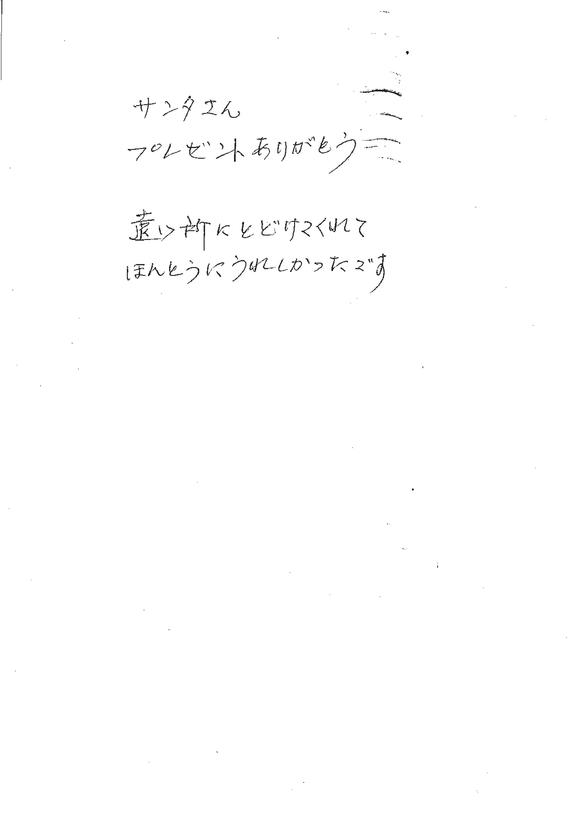 サンタさん
プレゼントありがとう
遠い所にとどけてくれて
ほんとうにうれしかったです